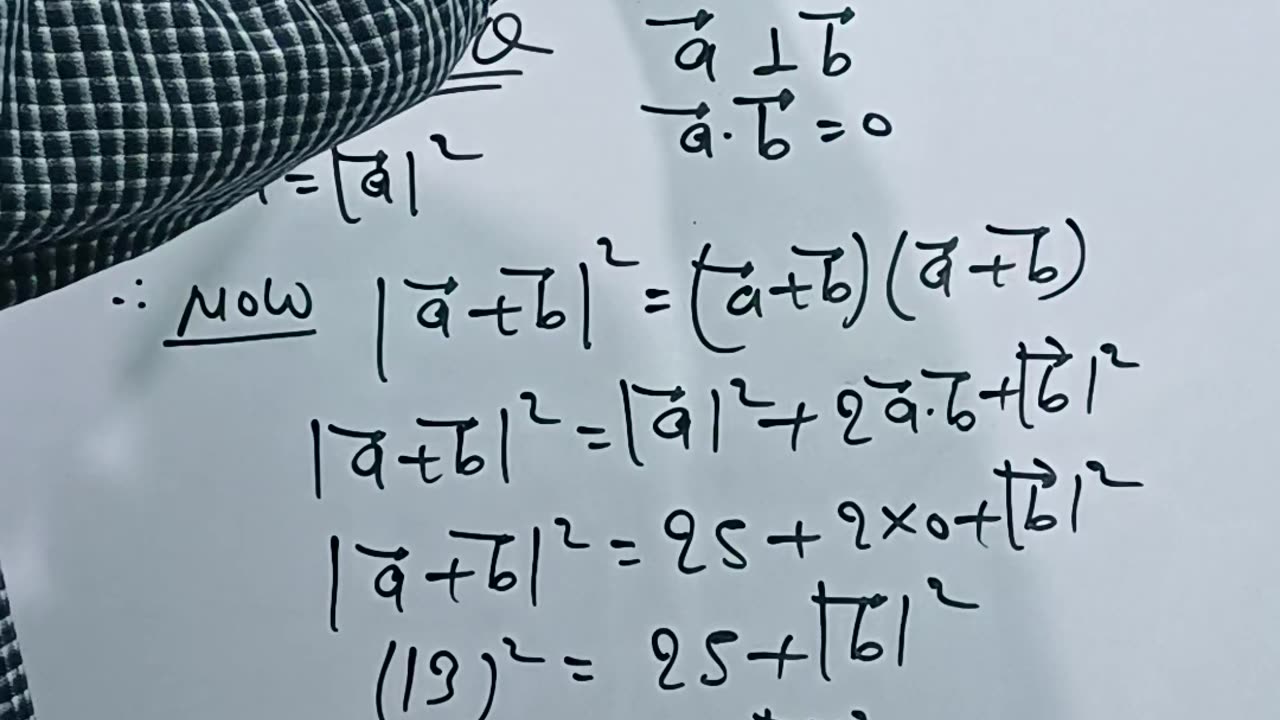 a⃗ ⊥ b⃗
a⃗ · b⃗ = 0
= |a⃗|²
∴ Now |a⃗ + b⃗|² = (a⃗ + b⃗)(a⃗ + b⃗)
|a⃗ + b⃗|² = |a⃗|² + 2a⃗ · b⃗ + |b⃗|²
|a⃗ + b⃗|² = 25 + 2×0 + |b⃗|²
(13)² = 25 + |b⃗|²